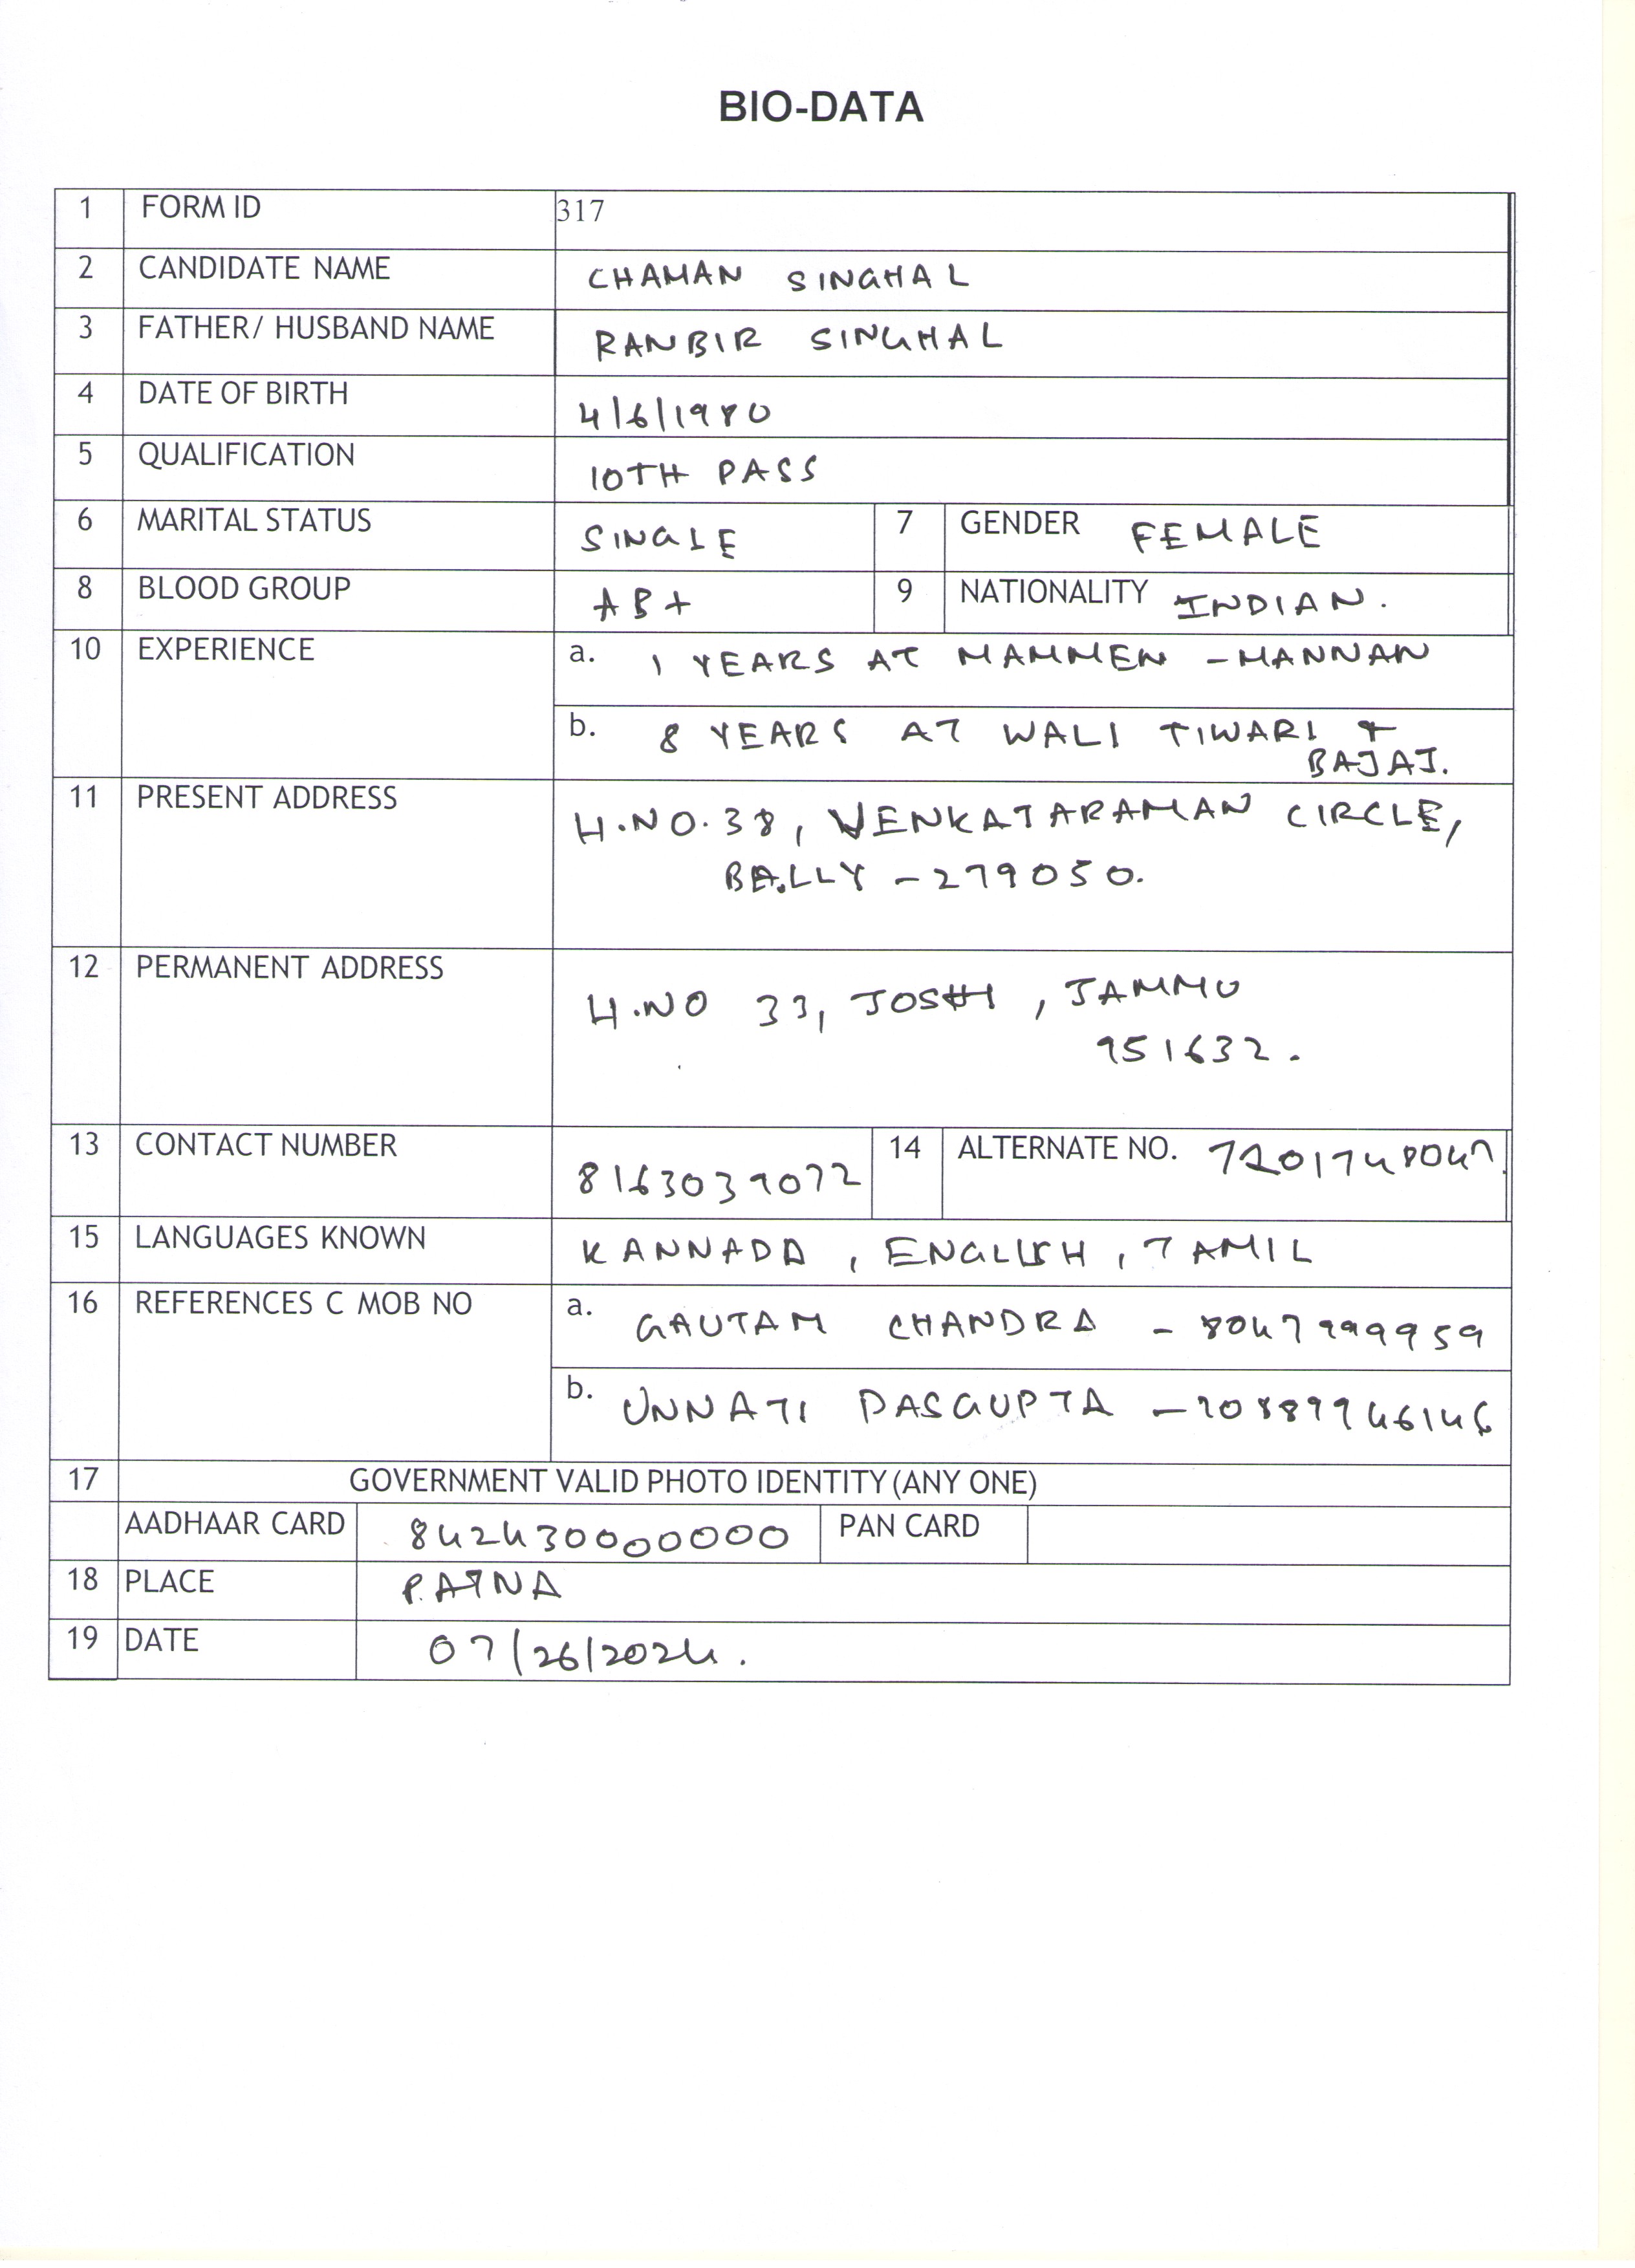 BIO-DATA
1 FORM ID 317
2 CANDIDATE NAME CHAMAN SINGHAL
3 FATHER/ HUSBAND NAME RANBIR SINGHAL
4 DATE OF BIRTH 4/6/1980
5 QUALIFICATION 10TH PASS
6 MARITAL STATUS SINGLE 7 GENDER FEMALE
8 BLOOD GROUP AB+ 9 NATIONALITY INDIAN.
10 EXPERIENCE a. 1 YEARS AT MAMMEN - MANNAN
b. 8 YEARS AT WALI TIWARI &
BAJAJ.
11 PRESENT ADDRESS H.NO.38, VENKATARAMAN CIRCLE,
BALLY - 279050.
12 PERMANENT ADDRESS H.NO 33, JOSHI, JAMMU
951632.
13 CONTACT NUMBER 8163039072 14 ALTERNATE NO. 7201748047.
15 LANGUAGES KNOWN KANNADA, ENGLISH, TAMIL
16 REFERENCES C MOB NO a. GAUTAM CHANDRA - 8047999959
b. UNNATI DASGUPTA -
17 GOVERNMENT VALID PHOTO IDENTITY (ANY ONE)
AADHAAR CARD 842430000000 PAN CARD
18 PLACE PATNA
19 DATE 07/26/2024.